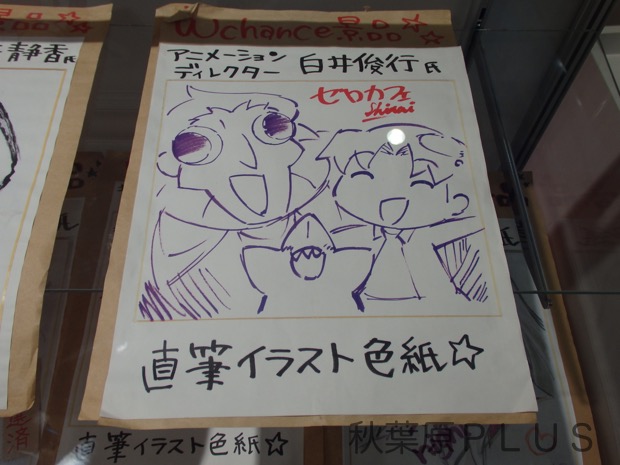 Wchance
静香氏
アニメーション
ディレクター 白井俊行氏
ゼロカフェ
Shirai
直筆イラスト色紙☆
直筆イラスト色紙☆
秋葉原PLUS